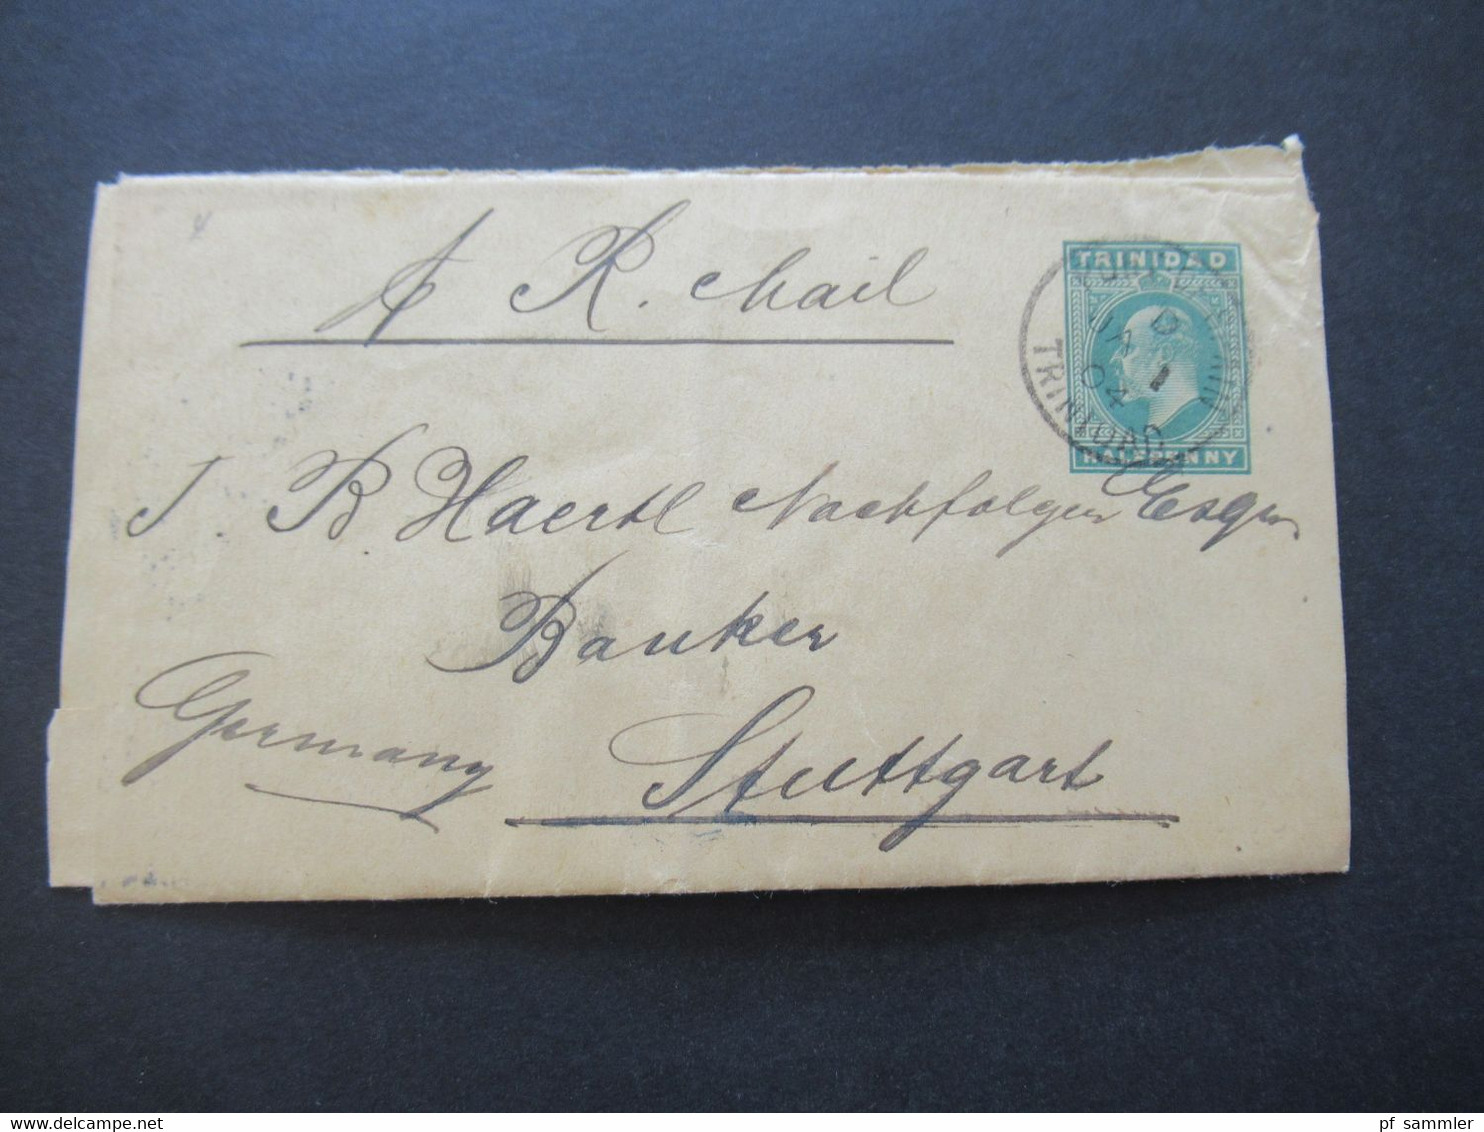 R. Mail
TRINIDAD
HALFPENNY
PORT OF SPAIN
D
JA 1
04
TRINIDAD
J B Haertl Nachfolger Esqr
Banker
Germany
Stuttgart
www.delcampe.net
pf_sammler